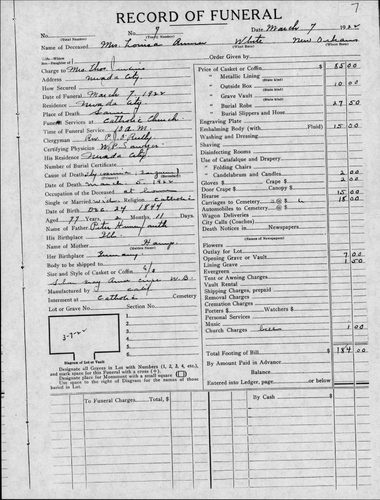 7
RECORD OF FUNERAL
No. 1 Date March 7 1922
(Total Number) (Yearly Number)
Name of Deceased Mrs. Louisa White New Orleans
(What Race) (Where Born)
Order Given by
Charge to Mrs Thos Jenkins
Address Nevada City
How Secured
Date of Funeral March 7, 1922
Residence Nevada City
Place of Death Same
Funeral Services at Catholic Church
Time of Funeral Service 10 A.M.
Clergyman Rev. P. J. O'Reilly
Certifying Physician W.P. Sawyer
His Residence Nevada City
Number of Burial Certificate
Cause of Death
Date of Death March 1922
Occupation of the Deceased at home
Single or Married widow Religion Catholic
Date of Birth Dec 24 1844
Aged 77 Years, 2 Months, 11 Days
Name of Father Peter
His Birthplace Ill.
Name of Mother
Her Birthplace Germany
Body to be shipped to
Size and Style of Casket or Coffin 6/3
Manufactured by
Interment at Catholic Cemetery
Lot or Grave No. Section No.
3-7-22
Diagram of Lot or Vault
Designate all Graves in Lot with Numbers (1, 2, 3, 4, etc.), and mark space for this Funeral with a cross (+).
Designate place for Monument with a small square
Use space to the right of Diagram for the names of those buried in Lot.
Price of Casket or Coffin $ 85.00
" Metallic Lining
" Outside Box 10 00
" Grave Vault
" Burial Robe 27 50
" Burial Slippers and Hose
Engraving Plate
Embalming Body (with Fluid) 15 00
Washing and Dressing
Shaving
Disinfecting Rooms
Use of Catafalque and Drapery
" Folding Chairs
" Candelabrum and Candles 2 00
Gloves $ Crape $ 2 00
Door Crape
Hearse 15 00
Carriages to Cemetery 18 00
Automobiles to Cemetery
Wagon Deliveries
City Calls (Coaches)
Death Notices in Newspapers
(Names of Newspapers)
Flowers
Outlay for Lot
Opening Grave or Vault 7 00
Lining Grave 1 50
Evergreens
Tent or Awning Charges
Vault Rental
Shipping Charges, prepaid
Removal Charges
Cremation Charges
Porters $ Watchers $
Personal Services
Music
Church Charges 1 00
Total Footing of Bill $ 184 00
By Amount Paid in Advance
Balance
Entered into Ledger, page or below
To Funeral Charges, Total $ By Cash $